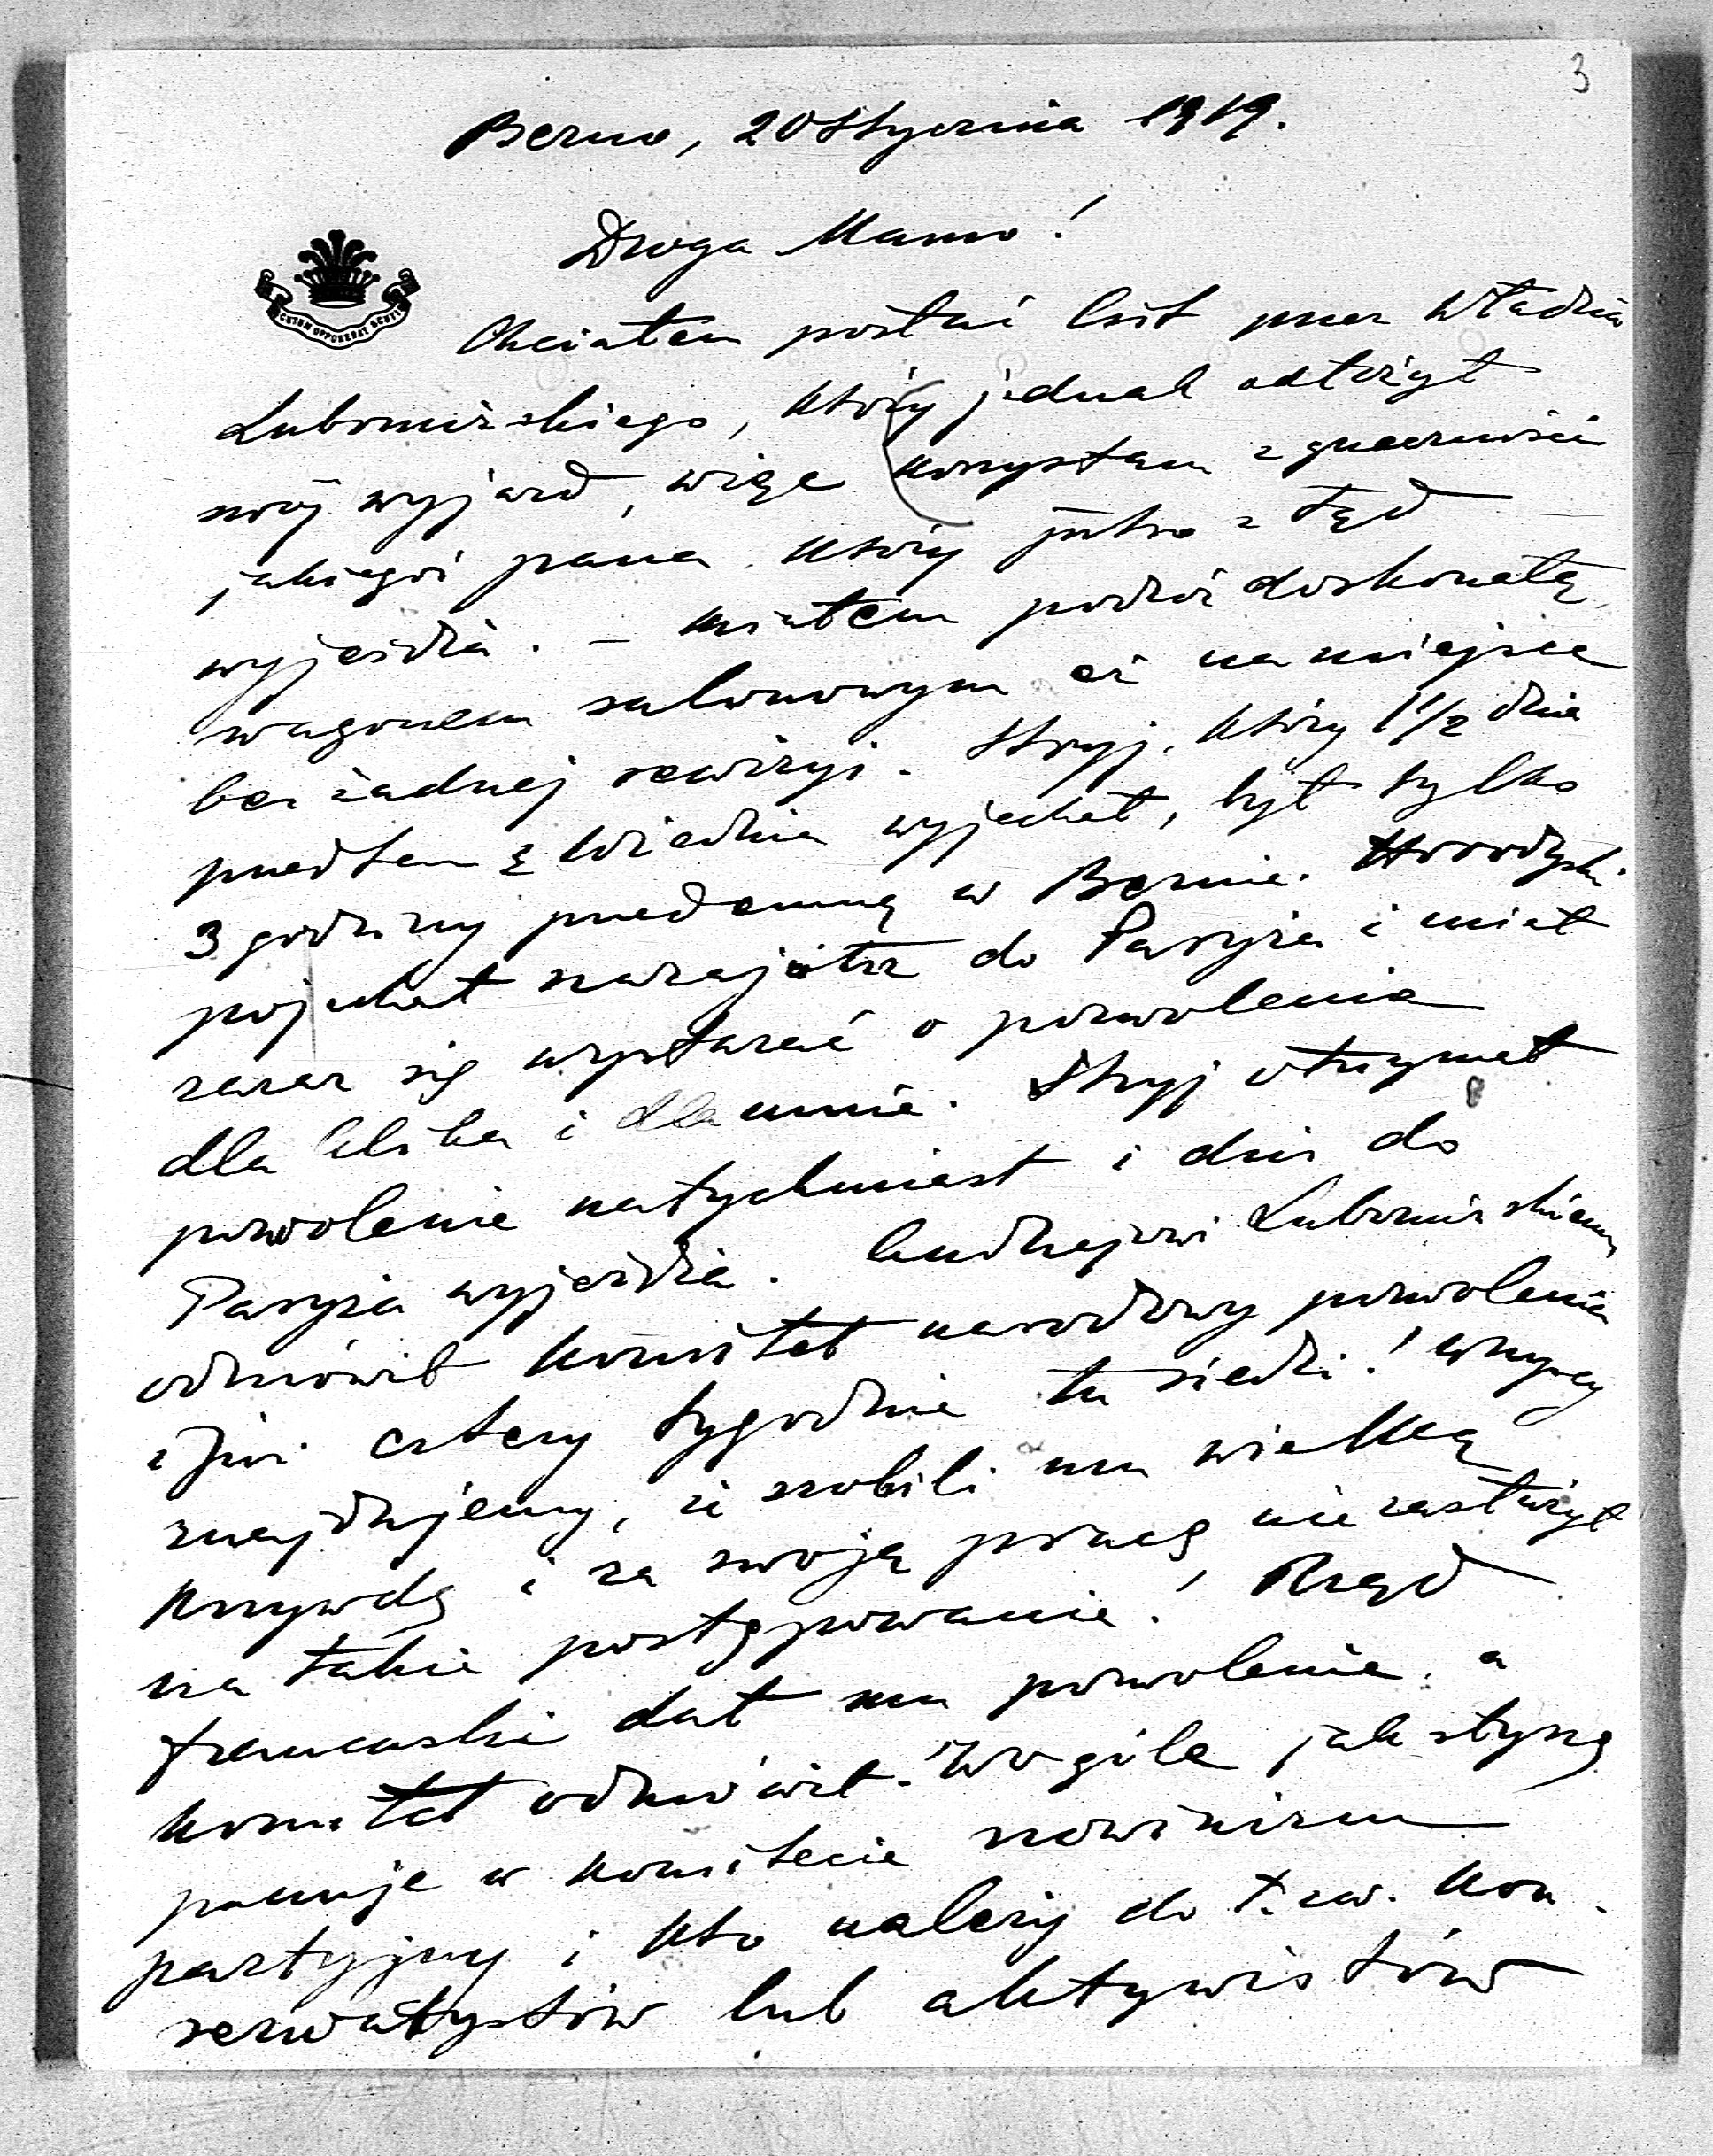 3
Berno, 20 Stycznia 1919.
Droga Mamo!
SCUTUM OPPONEBAT SCUTIS
Chciałem posłać list przez Władzia
Lubomirskiego, który jednak odłożył
swój wyjazd, więc korzystam z grzeczności
jakiegoś pana, który jutro z tąd
wyjeżdża. – Miałem podróż doskonałą,
wagonem salonowym aż na miejsce
bez żadnej rewizyi. Stryj, który 1 1/2 dnia
przedtem z Wiednia wyjechał, był tylko
3 godziny przedemną w Bernie. Horodyski
pojechał nazajutrz do Paryża i miał
zaraz się wystarać o pozwolenia
dla i dla mnie. Stryj otrzymał
pozwolenie natychmiast i dziś do
Paryża wyjeżdża. Andrzejowi Lubomirskiemu
odmówił Komitet narodowy pozwolenia
i już cztery tygodnie tu siedzi! Wszyscy
znajdujemy, że zrobili mu wielką
krzywdę i za swoją pracę nie zasłużył
na takie postępowanie! Rząd
francuski dał mu pozwolenie, a
komitet odmówił. Wogóle jak słyszę
panuje w komitecie szowinizm
partyjny i kto należy do t. zw. kon-
serwatystów lub aktywistów